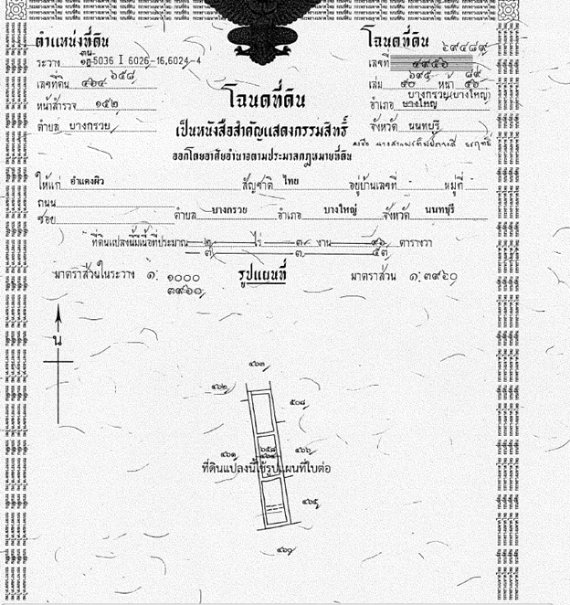 ตำแหน่งที่ดิน
โฉนดที่ดิน
๖๙๔๘๙
ระวาง 5036 I 6026-16,6024-4
เลขที่ ๔๙๕๖
๖๕๘
เลขที่ดิน ๔๖๔
๖๙๕ ๘๙
เล่ม ๕๐ หน้า ๕๖
หน้าสำรวจ ๑๕๒
โฉนดที่ดิน
บางกรวย(บางใหญ่)
อำเภอ บางใหญ่
ตำบล บางกรวย
เป็นหนังสือสำคัญแสดงกรรมสิทธิ์
จังหวัด นนทบุรี
ออกโดยอาศัยอำนาจตามประมวลกฎหมายที่ดิน
ให้แก่ อำแดงผิว สัญชาติ ไทย อยู่บ้านเลขที่ หมู่ที่
ถนน
ซอย ตำบล บางกรวย อำเภอ บางใหญ่ จังหวัด นนทบุรี
ที่ดินแปลงนี้มีเนื้อที่ประมาณ ๒ ไร่ ๓ งาน ๙๖ ตารางวา
๓ ๓ ๕๓
มาตราส่วนในระวาง ๑: ๑๐๐๐ รูปแผนที่ มาตราส่วน ๑:๓๙๖๐
๓๙๖๐
น
๔๖๓
๔๖๒
๕๐๘
๔๖๑ ๖๕๘ ๔๖๖
๔๖๔
ที่ดินแปลงนี้ใช้รูปแผนที่ใบต่อ
๔๖๕